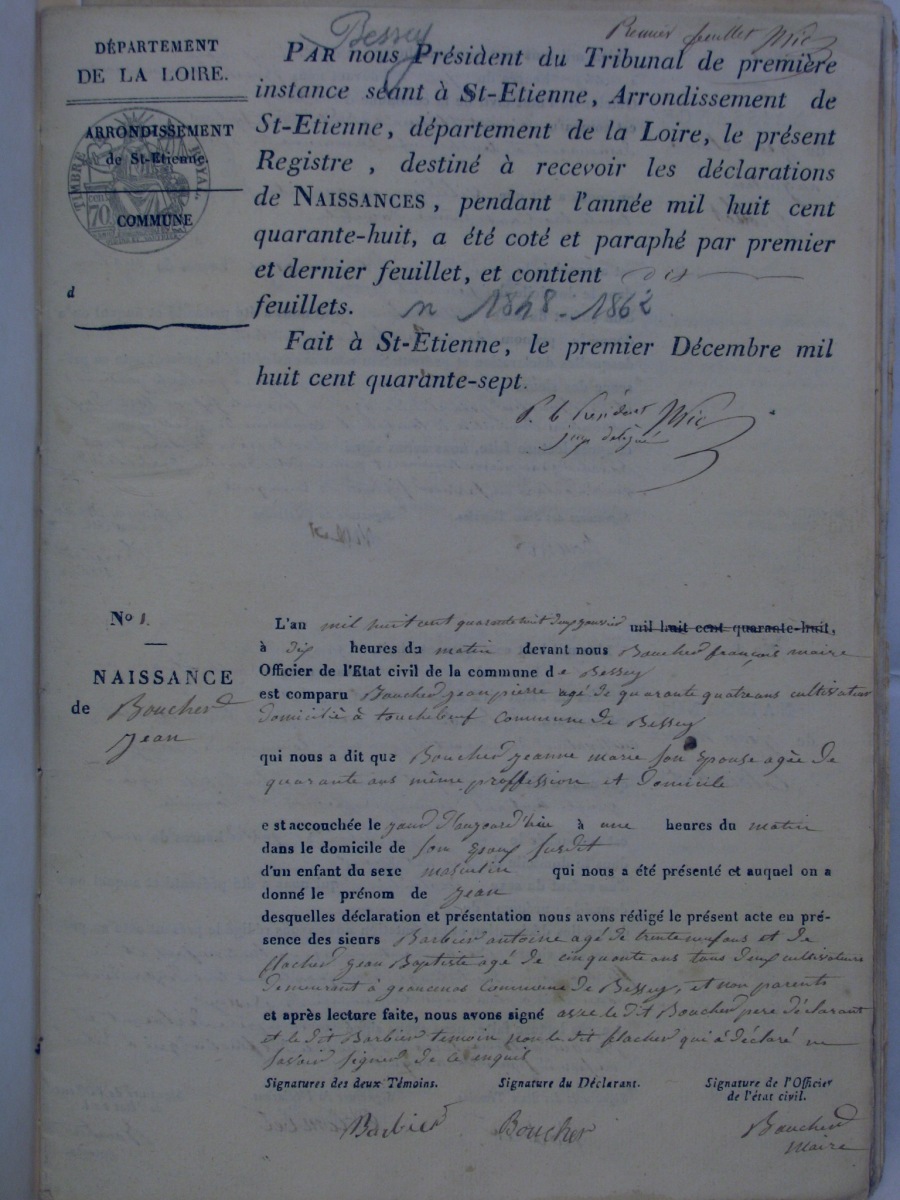 Bessey
Premier feuillet
DÉPARTEMENT
DE LA LOIRE.
ARRONDISSEMENT
de St-Etienne.
COMMUNE
d
TIMBRE ROYAL
70
PAR nous Président du Tribunal de première
instance séant à St-Etienne, Arrondissement de
St-Etienne, département de la Loire, le présent
Registre, destiné à recevoir les déclarations
de NAISSANCES, pendant l'année mil huit cent
quarante-huit, a été coté et paraphé par premier
et dernier feuillet, et contient dix
feuillets. n 1848-1862
Fait à St-Etienne, le premier Décembre mil
huit cent quarante-sept.
P. le Président
juge délégué
No 1.
NAISSANCE
de Boucher
Jean
L'an mil huit cent quarante huit deux janvier mil huit cent quarante-huit,
à dix heures du matin devant nous Boucher françois maire
Officier de l'Etat civil de la commune de Bessey
est comparu Boucher jean pierre agé de quarante quatre ans cultivateur
domicilié à touchebeuf Commune de Bessey
qui nous a dit que Boucher jeanne marie son épouse agée de
quarante ans même proffession et domicile
est accouchée le d'aujourd'hui à une heures du matin
dans le domicile de son époux susdit
d'un enfant du sexe masculin qui nous a été présenté et auquel on a
donné le prénom de Jean
desquelles déclaration et présentation nous avons rédigé le présent acte en pré-
sence des sieurs Barbier antoine agé de trente neuf ans et de
flacher jean Baptiste agé de cinquante ans tous deux cultivateurs
demeurant à Commune de Bessey, et non parents
et après lecture faite, nous avons signé avec le dit Boucher pere déclarant
et le dit Barbier temoin non le dit flacher qui à déclaré ne
savoir signer de ce enquit
Signatures des deux Témoins. Signature du Déclarant. Signature de l'Officier
de l'état civil.
Barbier Boucher Boucher
maire